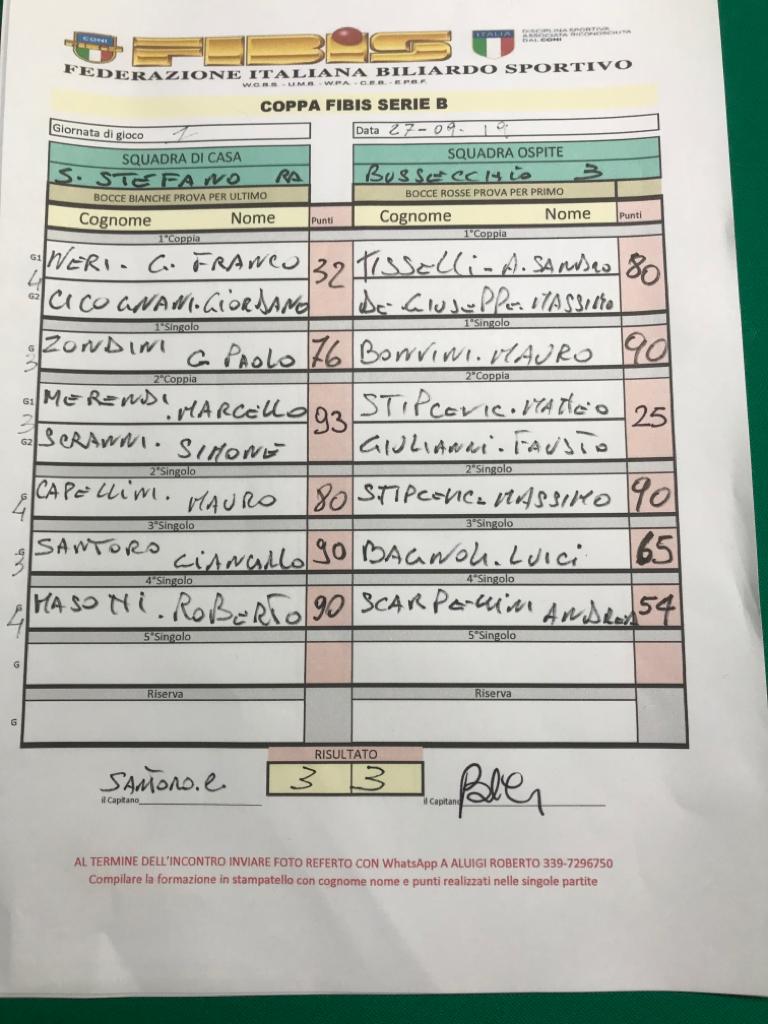 CONI FIBIS ITALIA DISCIPLINA SPORTIVA ASSOCIATA RICONOSCIUTA DAL CONI
FEDERAZIONE ITALIANA BILIARDO SPORTIVO
W.C.B.S. - U.M.B. - W.P.A. - C.E.B. - E.P.B.F.
COPPA FIBIS SERIE B
Giornata di gioco 1 Data 27-09-19
SQUADRA DI CASA SQUADRA OSPITE
S. STEFANO RA BUSSECCHIO 3
BOCCE BIANCHE PROVA PER ULTIMO BOCCE ROSSE PROVA PER PRIMO
Cognome Nome Punti Cognome Nome Punti
1°Coppia 1°Coppia
G1 NERI. G. FRANCO 32 TISSELLI-A.SANDRO 80
4
G2 CICOGNANI.GIORDANO DE GIUSEPPE.MASSIMO
1°Singolo 1°Singolo
G 3 ZONDINI G. PAOLO 76 BONVINI.MAURO 90
2°Coppia 2°Coppia
G1 MERENDI.MARCELLO 93 STIPCEVIC.MATTEO 25
3
G2 SCRANNI. SIMONE GIULIANNI.FAUSTO
2°Singolo 2°Singolo
G 4 CAPELLINI. MAURO 80 STIPCEVIC.MASSIMO 90
3°Singolo 3°Singolo
G 3 SANTORO GIANCARLO 90 BAGNOLI.LUIGI 65
4°Singolo 4°Singolo
G 4 MASONI.ROBERTO 90 SCARPELLINI ANDREA 54
5°Singolo 5°Singolo
G
Riserva Riserva
G
RISULTATO
SANTORO.G. 3 3
il Capitano il Capitano
AL TERMINE DELL'INCONTRO INVIARE FOTO REFERTO CON WhatsApp A ALUIGI ROBERTO 339-7296750
Compilare la formazione in stampatello con cognome nome e punti realizzati nelle singole partite